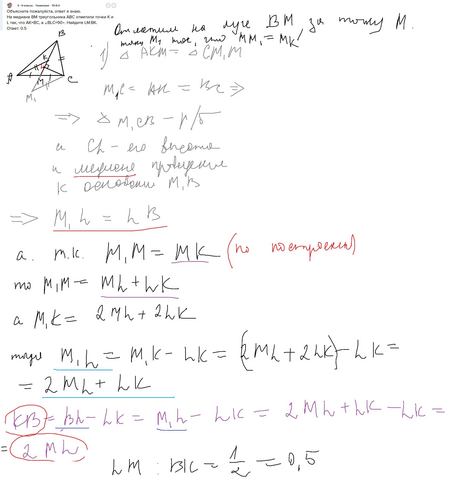 8 - 9 классы Геометрия
Объясните пожалуйста, ответ я знаю.
На медиане BM треугольника ABC отметили точки K и
L так, что AK=BC, а ∠BLC=90∘. Найдите LM:BK
Ответ: 0.5
Отложим на луче BM за точку M.
точку M₁ так, что MM₁ = MK
B
K
A
M
C
M₁
1) △ AKM = △ CM₁M
M₁C = AK = BC ⇒
⇒ △ M₁CB – р/б
а CL – его высота
и медиана проведения
к основанию M₁B
⇒ M₁L = LB
а т.к. M₁M = MK (по построению)
то M₁M = ML + LK
а M₁K = 2ML + 2LK
тогда M₁L = M₁K – LK = (2ML + 2LK) – LK =
= 2ML + LK
KB = BL – LK = M₁L – LK = 2ML + LK – LK =
= 2ML
LM : BK = 1/2 = 0,5